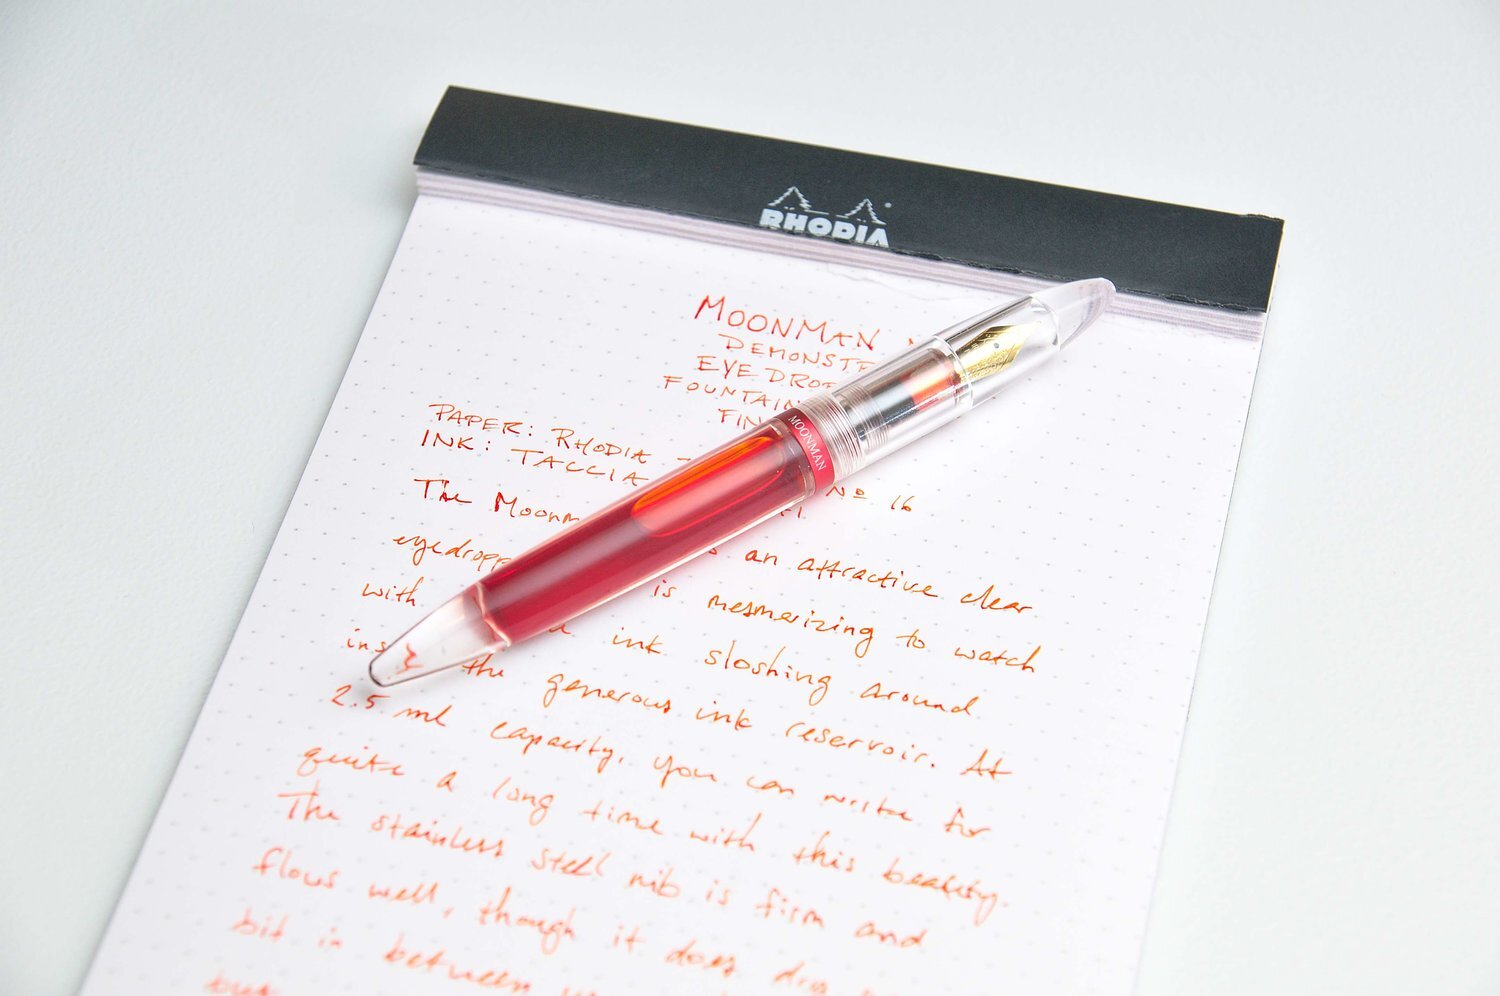 RHODIA
MOONMAN
DEMONST
EYEDRO
FOUNTAIN
FIN
MOONMAN
PAPER: RHODIA - No 16
INK: TACCIA
The Moonm
eyedropp an attractive clear
with is mesmerizing to watch
ink sloshing around
the generous ink reservoir. At
2.5 ml capacity, you can write for
quite a long time with this beauty.
The stainless steel nib is firm and
flows well, though it does
bit in between
but